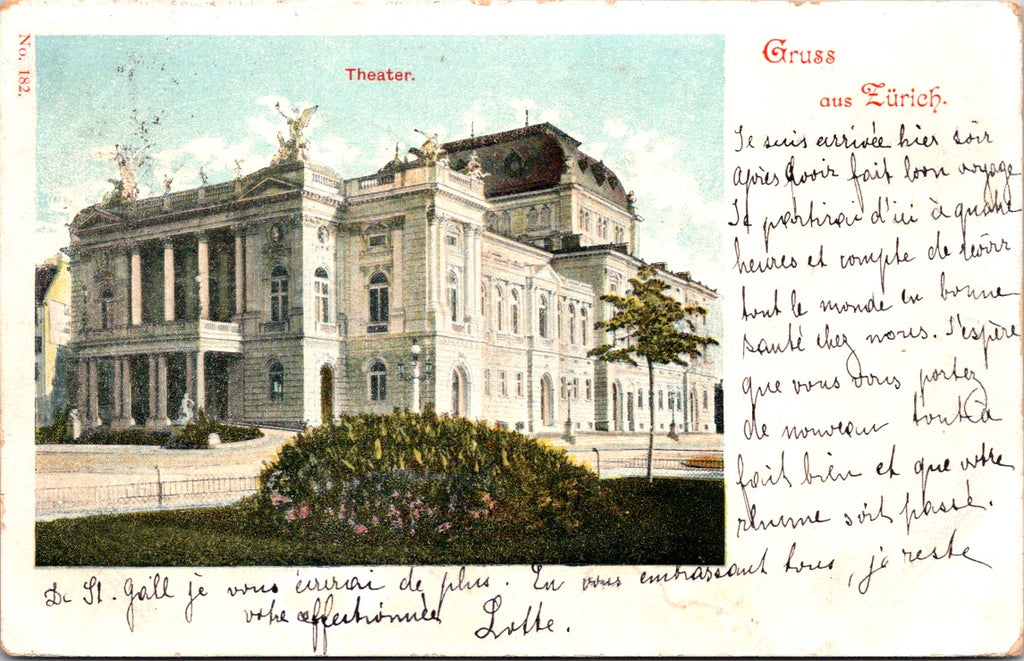 No. 182.
Theater.
Gruss
aus Zürich.
Je suis arrivée hier soir
après avoir fait bon voyage
Je partirai d'ici à quatre
heures et compte de revoir
tout le monde en bonne
santé chez nous. J'espère
que vous vous portez
de nouveau tout à
fait bien et que votre
rhume soit passé.
De St. Gall je vous écrirai de plus. En vous embrassant tous, je reste
votre affectionnée
Lotte.